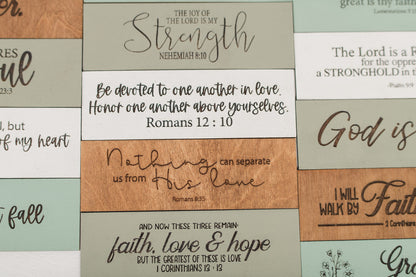 er.
RES
ul
23:3
, but
of my heart
t fall
THE JOY OF
THE LORD IS MY
Strength
NEHEMIAH 8:10
Be devoted to one another in love.
Honor one another above yourselves.
Romans 12 : 10
Nothing can separate
us from His love
Romans 8:35
AND NOW THESE THREE REMAIN:
faith, love & hope
BUT THE GREATEST OF THESE IS LOVE
1 CORINTHIANS 13 : 13
great is thy faith
Lamentations 3:2
The Lord is a R
for the oppre
a STRONGHOLD in t
-Psalm 9:9
God is
I WILL
WALK BY Faith
2 Corinthians
Gr